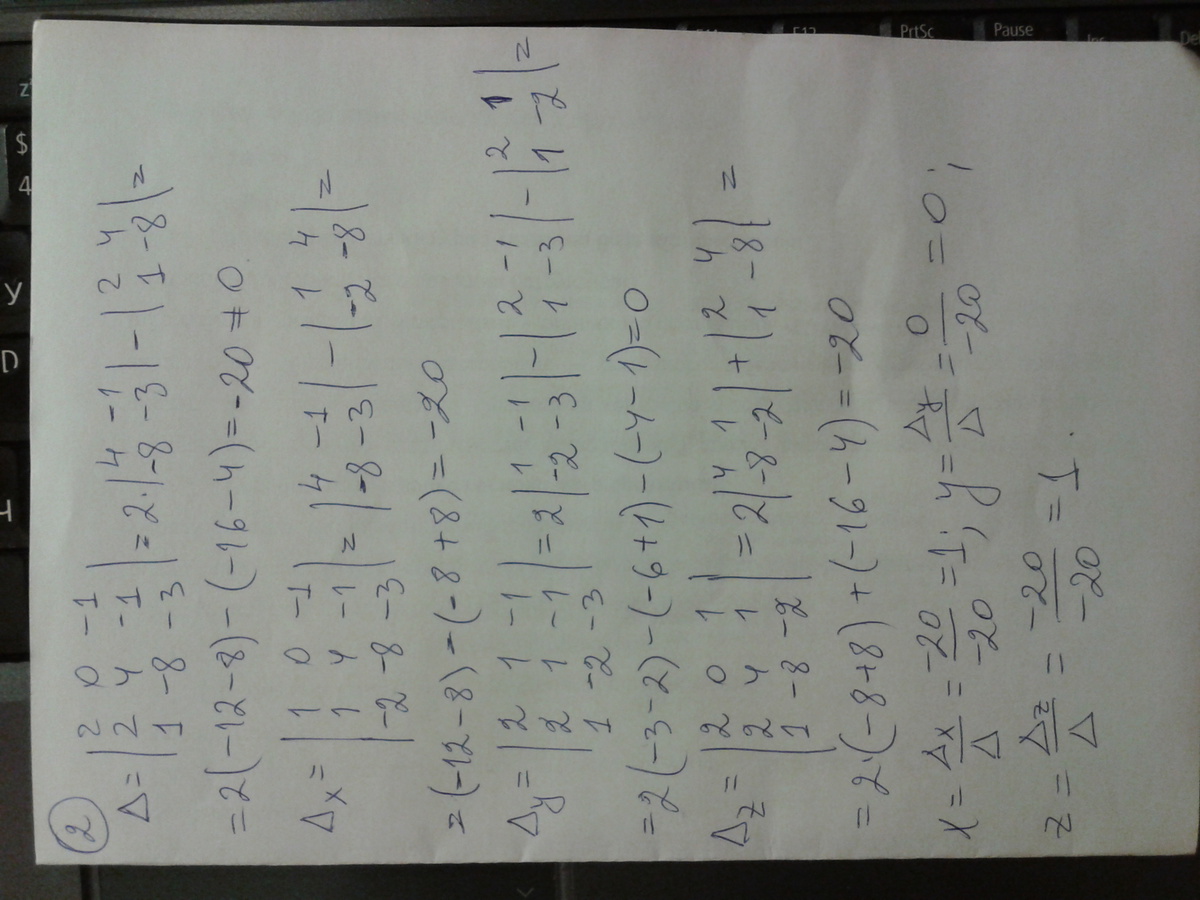 ②
Δ = |2 0 -1; 2 4 -1; 1 -8 -3| = 2·|4 -1; -8 -3| - |2 4; 1 -8| =
= 2(-12-8) - (-16-4) = -20 ≠ 0
Δx = |1 0 -1; 1 4 -1; -2 -8 -3| = |4 -1; -8 -3| - |1 4; -2 -8| =
= (-12-8) - (-8+8) = -20
Δy = |2 1 -1; 2 1 -1; 1 -2 -3| = 2|1 -1; -2 -3| - |2 -1; 1 -3| - |2 1; 1 -2| =
= 2(-3-2) - (-6+1) - (-4-1) = 0
Δz = |2 0 1; 2 4 1; 1 -8 -2| = 2|4 1; -8 -2| + |2 4; 1 -8| =
= 2·(-8+8) + (-16-4) = -20
x = Δx/Δ = -20/-20 = 1; y = Δy/Δ = 0/-20 = 0;
z = Δz/Δ = -20/-20 = 1.
PrtSc
Pause
$
4
У
D